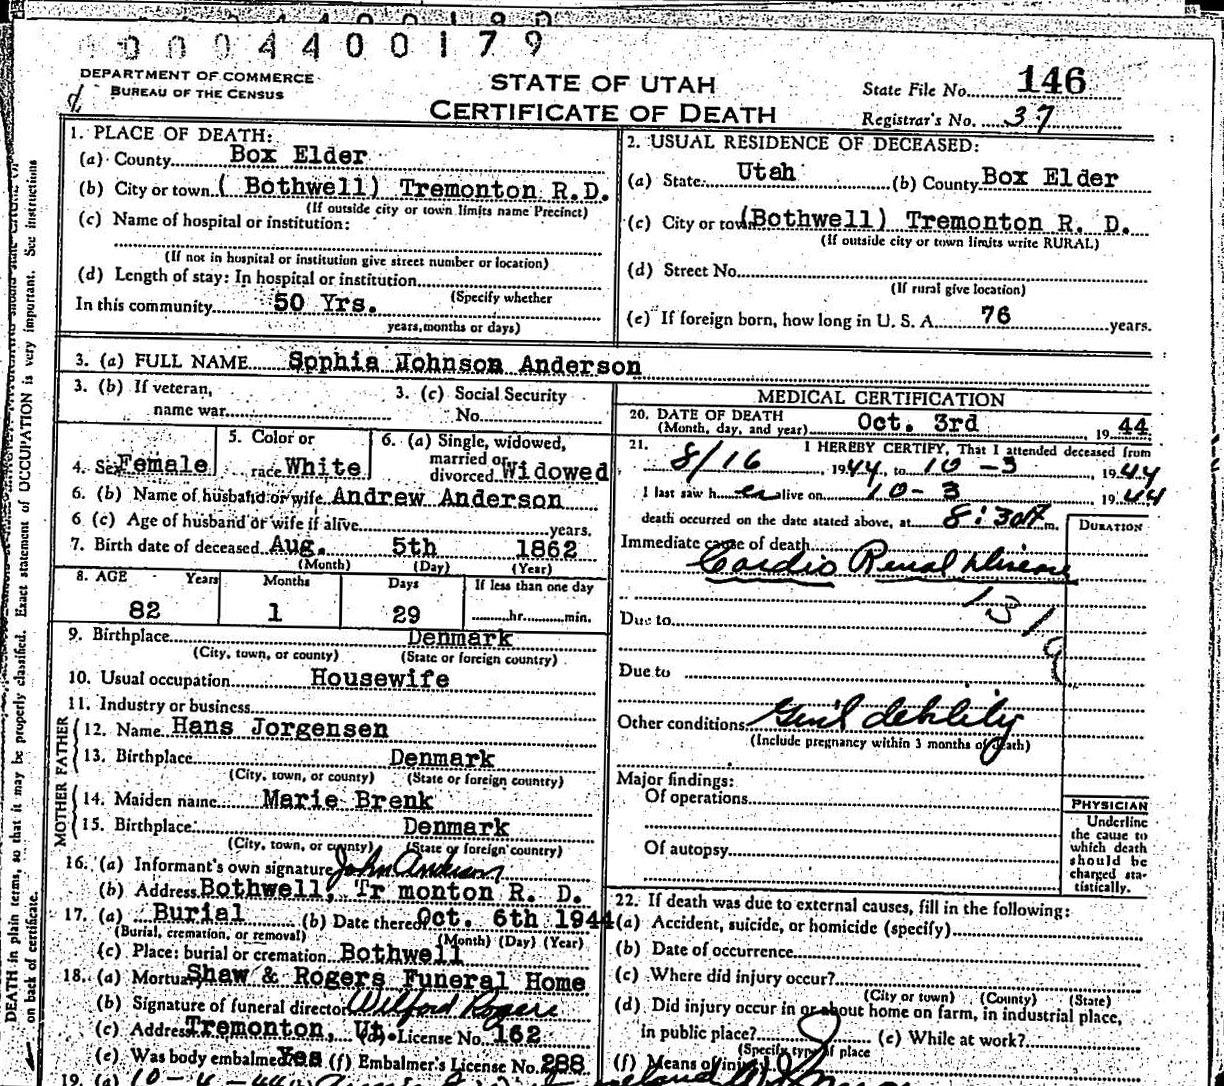 0004400179
DEPARTMENT OF COMMERCE
BUREAU OF THE CENSUS
STATE OF UTAH
CERTIFICATE OF DEATH
State File No. 146
Registrar's No. 37
1. PLACE OF DEATH:
(a) County Box Elder
(b) City or town ( Bothwell) Tremonton R.D.
(If outside city or town limits name Precinct)
(c) Name of hospital or institution:
(If not in hospital or institution give street number or location)
(d) Length of stay: In hospital or institution
(Specify whether
In this community 50 Yrs.
years, months or days)
2. USUAL RESIDENCE OF DECEASED:
(a) State Utah (b) County Box Elder
(c) City or town (Bothwell) Tremonton R. D.
(If outside city or town limits write RURAL)
(d) Street No.
(If rural give location)
(e) If foreign born, how long in U. S. A. 76 years.
3. (a) FULL NAME Sophia Johnson Anderson
3. (b) If veteran,
name war
3. (c) Social Security
No.
4. Sex Female
5. Color or
race White
6. (a) Single, widowed,
married or
divorced Widowed
6. (b) Name of husband or wife Andrew Anderson
6 (c) Age of husband or wife if alive years.
7. Birth date of deceased Aug. 5th 1862
(Month) (Day) (Year)
8. AGE Years Months Days If less than one day
82 1 29 hr. min.
9. Birthplace Denmark
(City, town, or county) (State or foreign country)
10. Usual occupation Housewife
11. Industry or business
FATHER
12. Name Hans Jorgensen
13. Birthplace Denmark
(City, town, or county) (State or foreign country)
MOTHER
14. Maiden name Marie Brenk
15. Birthplace Denmark
(City, town, or county) (State or foreign country)
16. (a) Informant's own signature John Anderson
(b) Address Bothwell, Tr monton R. D.
17. (a) Burial (b) Date thereof Oct. 6th 1944
(Burial, cremation, or removal) (Month) (Day) (Year)
(c) Place: burial or cremation Bothwell
18. (a) Mortuary Shaw & Rogers Funeral Home
(b) Signature of funeral director Wilford Rogers
(c) Address Tremonton, Ut. License No. 162
(e) Was body embalmed Yes (f) Embalmer's License No. 288
19. (a) 10-4-44
MEDICAL CERTIFICATION
20. DATE OF DEATH
(Month, day, and year) Oct. 3rd 19 44
21. I HEREBY CERTIFY, That I attended deceased from
8/16 1944, to 10-3 1944
I last saw h er alive on 10-3 1944
death occurred on the date stated above, at 8:30 A m.
DURATION
Immediate cause of death
Cardio Renal Disease
131
Due to
9
Due to
Other conditions Gen'l debility
(Include pregnancy within 3 months of death)
Major findings:
Of operations
Of autopsy
PHYSICIAN
Underline
the cause to
which death
should be
charged sta-
tistically.
22. If death was due to external causes, fill in the following:
(a) Accident, suicide, or homicide (specify)
(b) Date of occurrence
(c) Where did injury occur?
(City or town) (County) (State)
(d) Did injury occur in or about home on farm, in industrial place,
in public place? (e) While at work?
(Specify type of place
(f) Means of injury
DEATH in plain terms, so that it may be properly classified. Exact statement of OCCUPATION is very important. See instructions
on back of certificate.